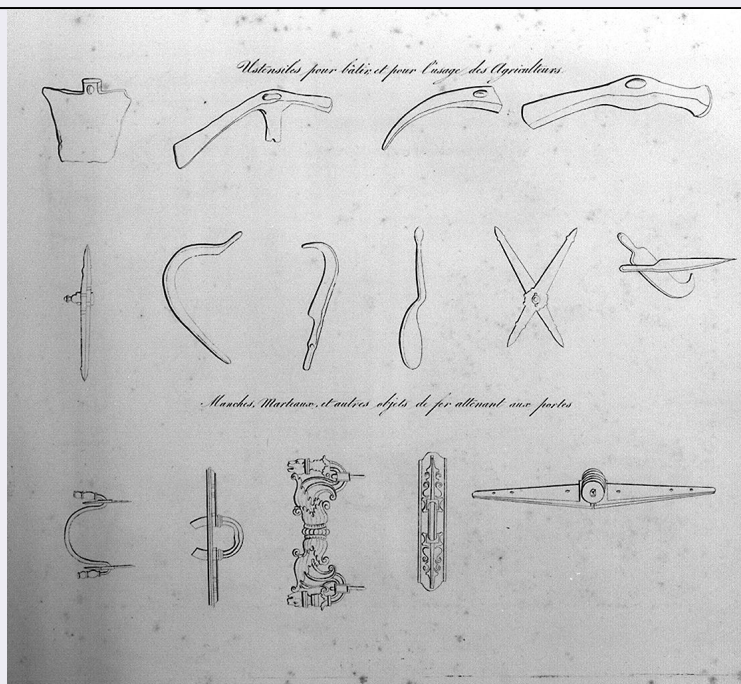 Ustensiles pour bâtir, et pour l'usage des Agriculteurs
Manches, Marteaux, et autres objets de fer attenant aux portes